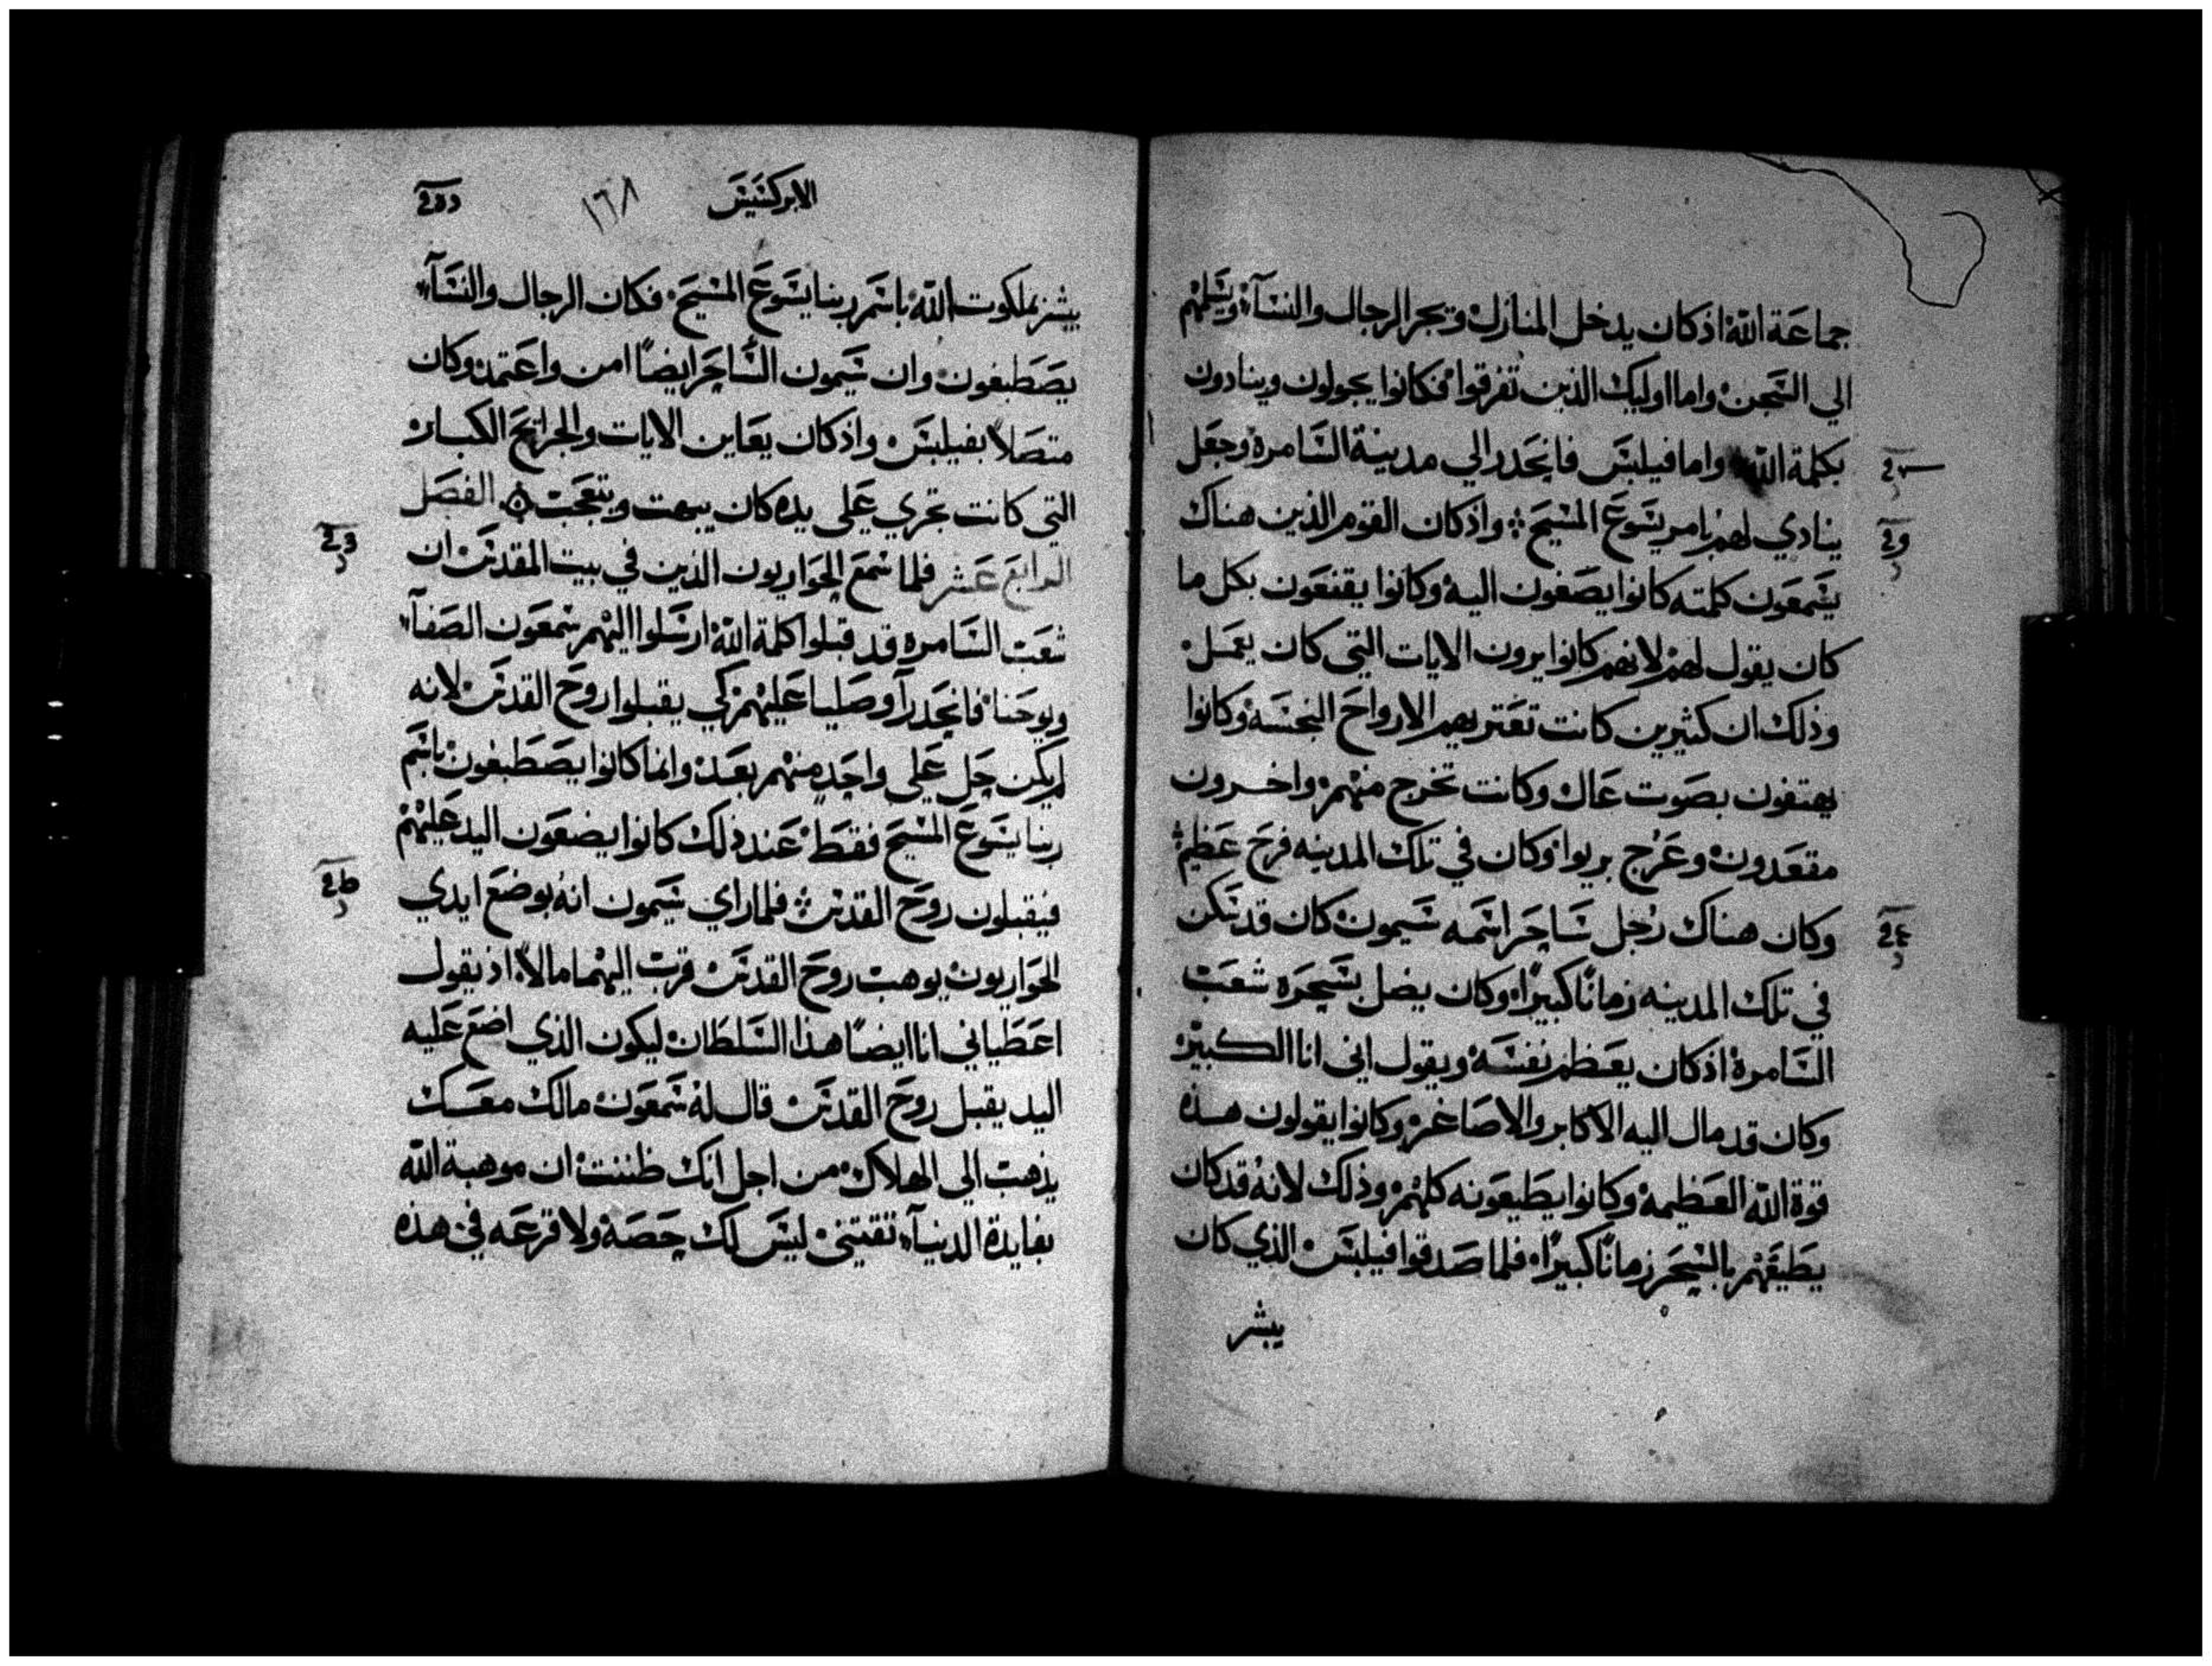 جماعة الله اذ كان يدخل المنازل ويجر الرجال والنسآء ويسلمهم
الي السجن واما اوليك الذين تفرقوا فكانوا يجولون وينادون
بكلمة الله واما فيلبس فانحدر الي مدينة السامرة وجعل
ينادي لهم بامر يسوع المسيح واذ كان القوم الذين هناك
يسمعون كلمته كانوا يصغون اليه وكانوا يقنعون بكل ما
كان يقول لهم لانهم كانوا يرون الايات التي كان يعمل
وذلك ان كثيرين كانت تعتريهم الارواح النجسه وكانوا
يهتفون بصوت عال وكانت تخرج منهم واخرون
مقعدون وعرج بريوا وكان في تلك المدينه فرح عظيم
وكان هناك رجل ساحر اسمه سيمون كان قد سكن
في تلك المدينه زمانًا كبيرًا وكان يضل بسحره شعب
السامرة اذ كان يعظم نفسه ويقول اني انا الكبير
وكان قد مال اليه الاكابر والاصاغر وكانوا يقولون هذه
قوة الله العظيمة وكانوا يطيعونه كلهم وذلك لانه قد كان
يطيغهم بالسحر زمانًا كبيرًا فلما صدقوا فيلبس الذي كان
يبشر
الابركسيس ١٦٨
يبشر بملكوت الله باسم ربنا يسوع المسيح فكان الرجال والنسآء
يصطبغون وان سيمون الساحر ايضًا امن واعتمد وكان
متصلاً بفيلبس واذ كان يعاين الايات والجرايح الكبار
التي كانت تجري علي يده كان يبهت ويتعجب الفصل
الرابع عشر فلما سمع الحواريون الذين في بيت المقدس ان
شعب السامره قد قبلوا كلمة الله ارسلوا اليهم سمعون الصفآء
ويوحنا فانحدرآ وصليا عليهم كي يقبلوا روح القدس لانه
لم يكن حل علي واحد منهم بعد وانما كانوا يصطبغون باسم
ربنا يسوع المسيح فقط عند ذلك كانوا يضعون اليد عليهم
فيقبلون روح القدس فلما راي سيمون انه بوضع ايدي
الحواريون يوهب روح القدس قرب اليهما مالاً اذ يقول
اعطياني انا ايضًا هذا السلطان ليكون الذي اضع عليه
اليد يقبل روح القدس قال له سمعون مالك معك
يذهب الي الهلاك من اجل انك ظننت ان موهبة الله
بفايدة الدنيآء تقتني ليس لك حصة ولا قرعه في هذه